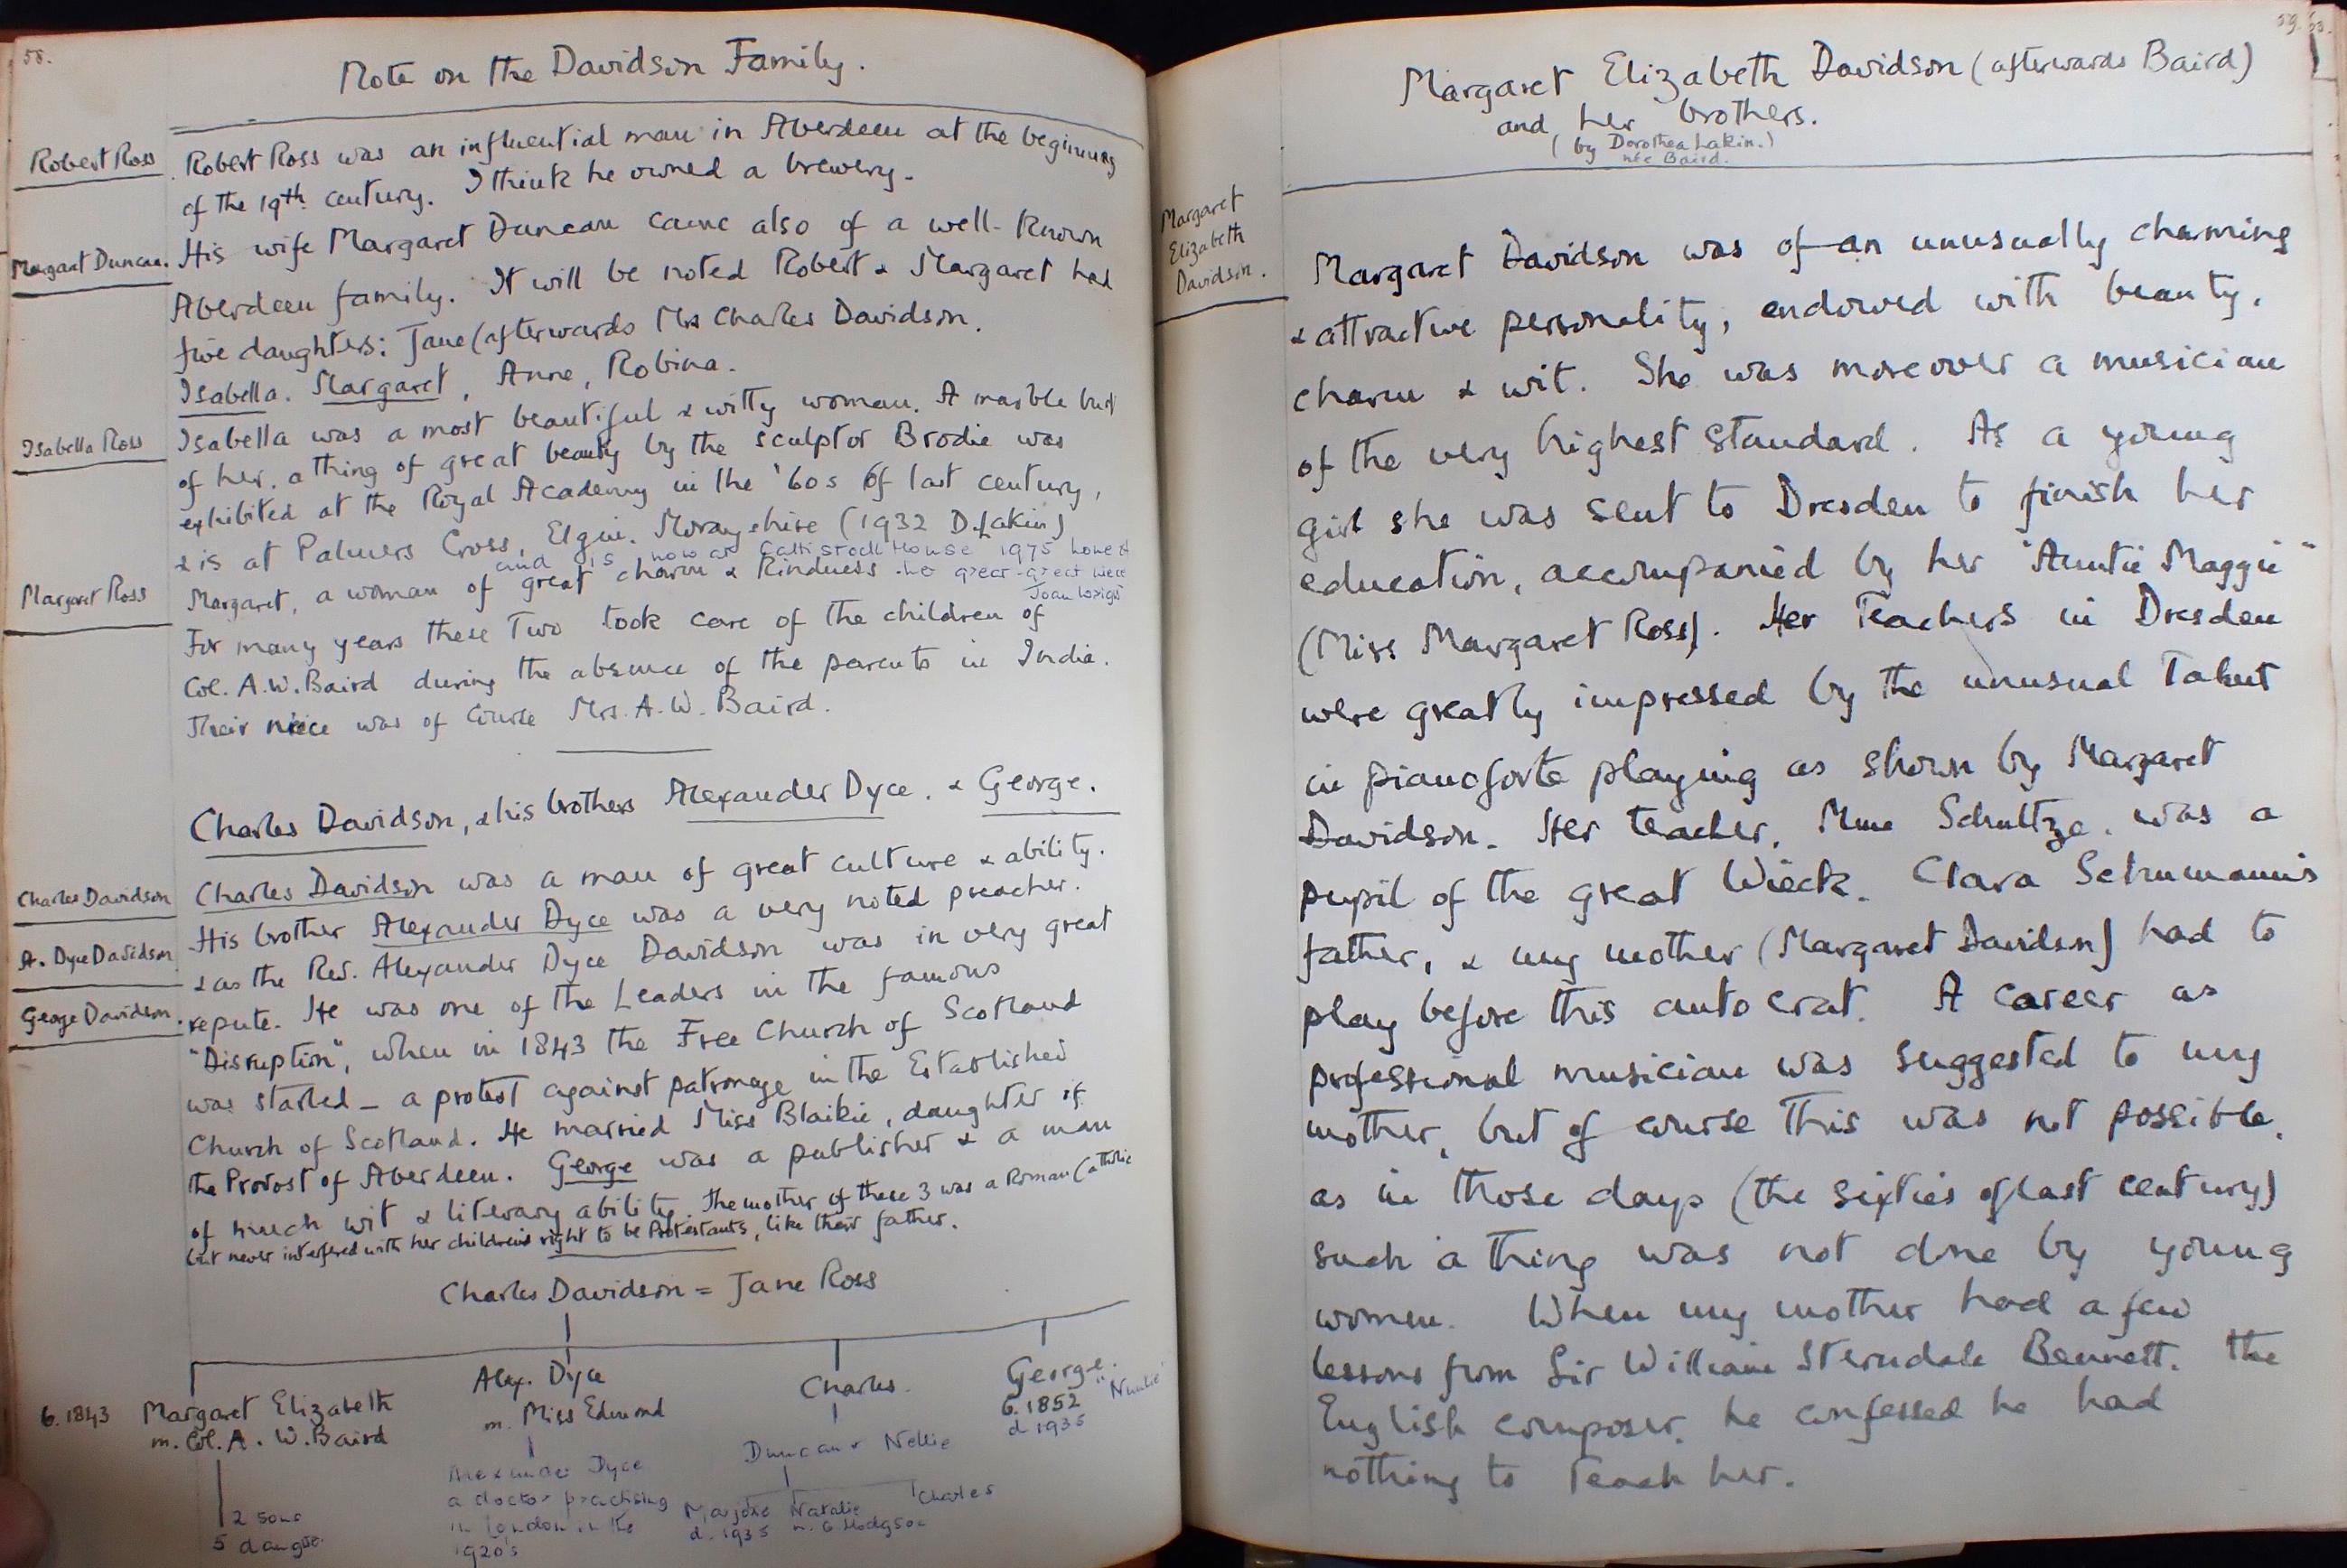 58.
Note on the Davidson Family.
Robert Ross
Robert Ross was an influential man in Aberdeen at the beginning
of the 19th century. I think he owned a brewery.
Margaret Duncan.
His wife Margaret Duncan came also of a well-known
Aberdeen family. It will be noted Robert & Margaret had
five daughters: Jane (afterwards Mrs Charles Davidson.
Isabella. Margaret, Anne, Robina.
Isabella Ross
Isabella was a most beautiful & witty woman. A marble bust
of her, a thing of great beauty by the sculptor Brodie was
exhibited at the Royal Academy in the '60s of last century,
& is at Palmers Cross, Elgin. Morayshire (1932 D. Lakin)
and is now at Cattistock House 1975 home of
Margaret Ross
Margaret, a woman of great charm & kindness
great-great niece
Joan
For many years these two took care of the children of
Col. A.W. Baird during the absence of the parents in India.
Their niece was of course Mrs. A.W. Baird.
Charles Davidson, & his brothers Alexander Dyce. & George.
Charles Davidson
Charles Davidson was a man of great culture & ability.
His brother Alexander Dyce was a very noted preacher.
A. Dyce Davidson
& as the Rev. Alexander Dyce Davidson was in very great
George Davidson.
repute. He was one of the Leaders in the famous
"Disruption", when in 1843 the Free Church of Scotland
was started – a protest against patronage in the Established
Church of Scotland. He married Miss Blaikie, daughter of
the Provost of Aberdeen. George was a publisher & a man
of much wit & literary ability. The mother of these 3 was a Roman Catholic
but never interfered with her children's right to be Protestants, like their father.
Charles Davidson = Jane Ross
b. 1843 Margaret Elizabeth
m. Col. A. W. Baird
2 sons
5 daughts.
Alex. Dyce
m. Miss Edmond
Alexander Dyce
a doctor practising
in London in the
1920's
Charles.
Duncan & Nellie
Marjorie
d. 1935
Natalie
m. G Hodgson
Charles
George.
b. 1852
d 1935
59.60.
Margaret Elizabeth Davidson (afterwards Baird)
and her brothers.
(by Dorothea Lakin.)
née Baird.
Margaret
Elizabeth
Davidson.
Margaret Davidson was of an unusually charming
& attractive personality, endowed with beauty,
charm & wit. She was moreover a musician
of the very highest standard. As a young
girl she was sent to Dresden to finish her
education, accompanied by her "Auntie Maggie"
(Miss Margaret Ross). Her Teachers in Dresden
were greatly impressed by the unusual talent
in pianoforte playing as shown by Margaret
Davidson. Her teacher, Mme Schultze, was a
pupil of the great Wieck. Clara Schumann's
father, & my mother (Margaret Davidson) had to
play before this autocrat. A career as
professional musician was suggested to my
mother, but of course this was not possible.
as in those days (the sixties of last century)
such a thing was not done by young
women. When my mother had a few
lessons from Sir William Sterndale Bennett. the
English composer, he confessed he had
nothing to teach her.